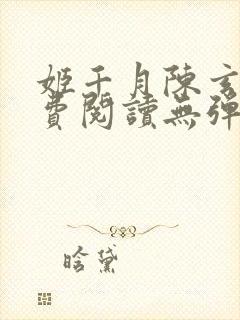 姬千月陳玄
費閱讀無彈
晗黛